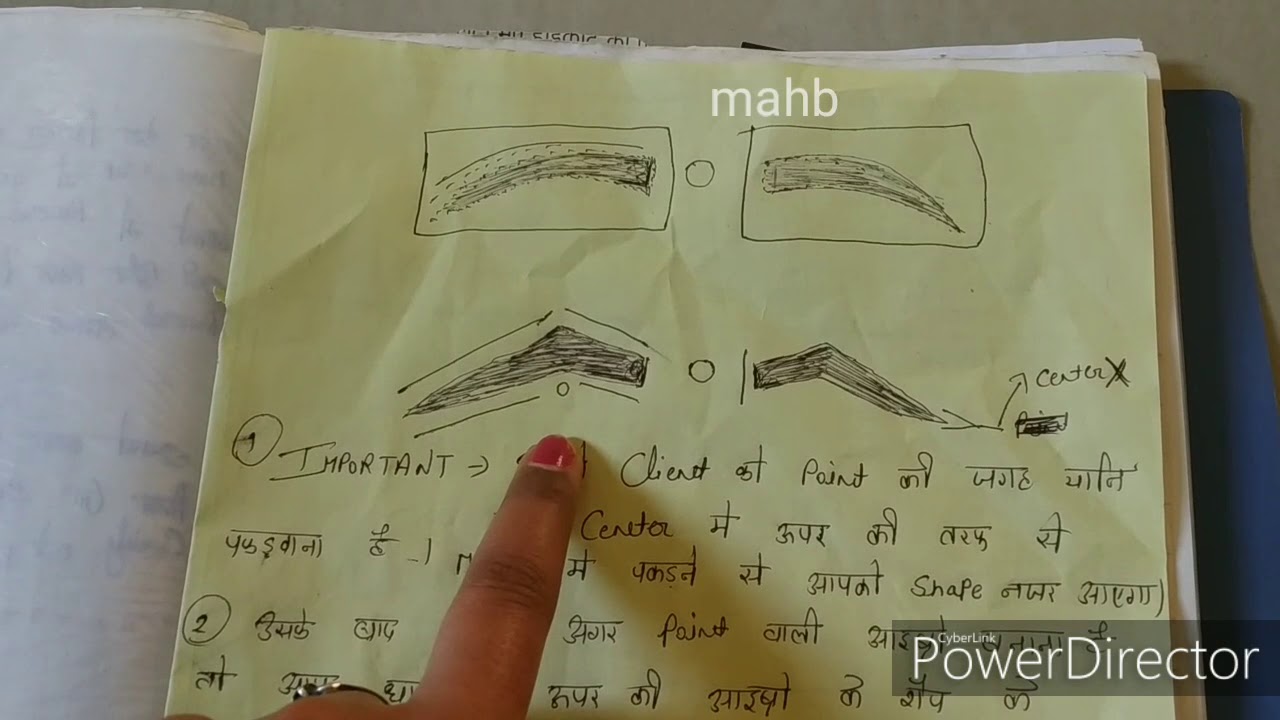 mahb
Center
① IMPORTANT ⇒ Client को Point की जगह यानि
पकड़वाना है । Center मे ऊपर की तरफ से
मे पकड़ने से आपको Shape नजर आएगा)
② उसके बाद अगर Point वाली आइब्रो बनाना है
तो आप ऊपर की आइब्रो के शेप के
CyberLink
PowerDirector